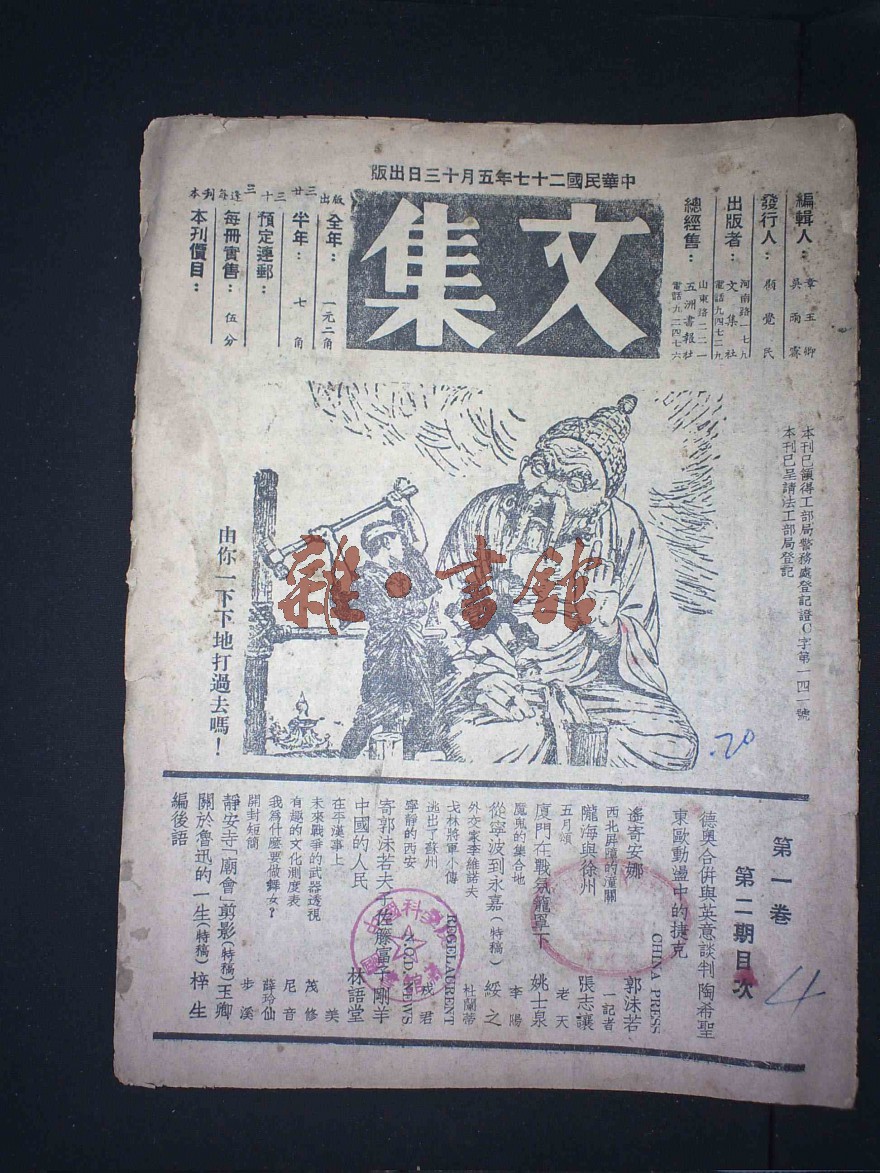 中華民國二十七年五月十三日出版
文集
編輯人：章玉卿
吳雨霖
發行人：顧覺民
出版者：文集社
河南路一七九
電話九四七二九
總經售：五洲書報社
山東路二二一
電話九二四七六
本刊每逢三十三廿三出版
全年：一元二角
半年：七角
預定連郵：
每冊實售：伍分
本刊價目：
本刊已領得工部局警務處登記證C字第一四一號
本刊已呈請法工部局登記
由你一下下地打過去嗎！
雜·書館
.20
第一卷
第二期目次
4
德奧合併與英意談判 陶希聖
東歐動盪中的捷克 CHINA PRESS
遙寄安娜 郭沫若
西北屏障的潼關 一記者
隴海與徐州 張志讓
五月頌 老天
廈門在戰氛籠罩下 姚士泉
魔鬼的集合地 李陽
從寧波到永嘉（特稿） 綏之
外交家李維諾夫 杜蘭蒂
戈林將軍小傳 ROSELAURENT
逃出了蘇州 戍君
寧靜的西安 N.C.D.NEWS
寄郭沫若夫子佐藤富子 剛羊
中國的人民 林語堂
在平漢車上 美
未來戰爭的武器透視 茂修
有趣的文化測度表 尼音
我為什麼要做舞女？ 薛玲仙
開封短簡 步溪
靜安寺「廟會」剪影（特稿） 玉卿
關於魯迅的一生（特稿） 梓生
編後語